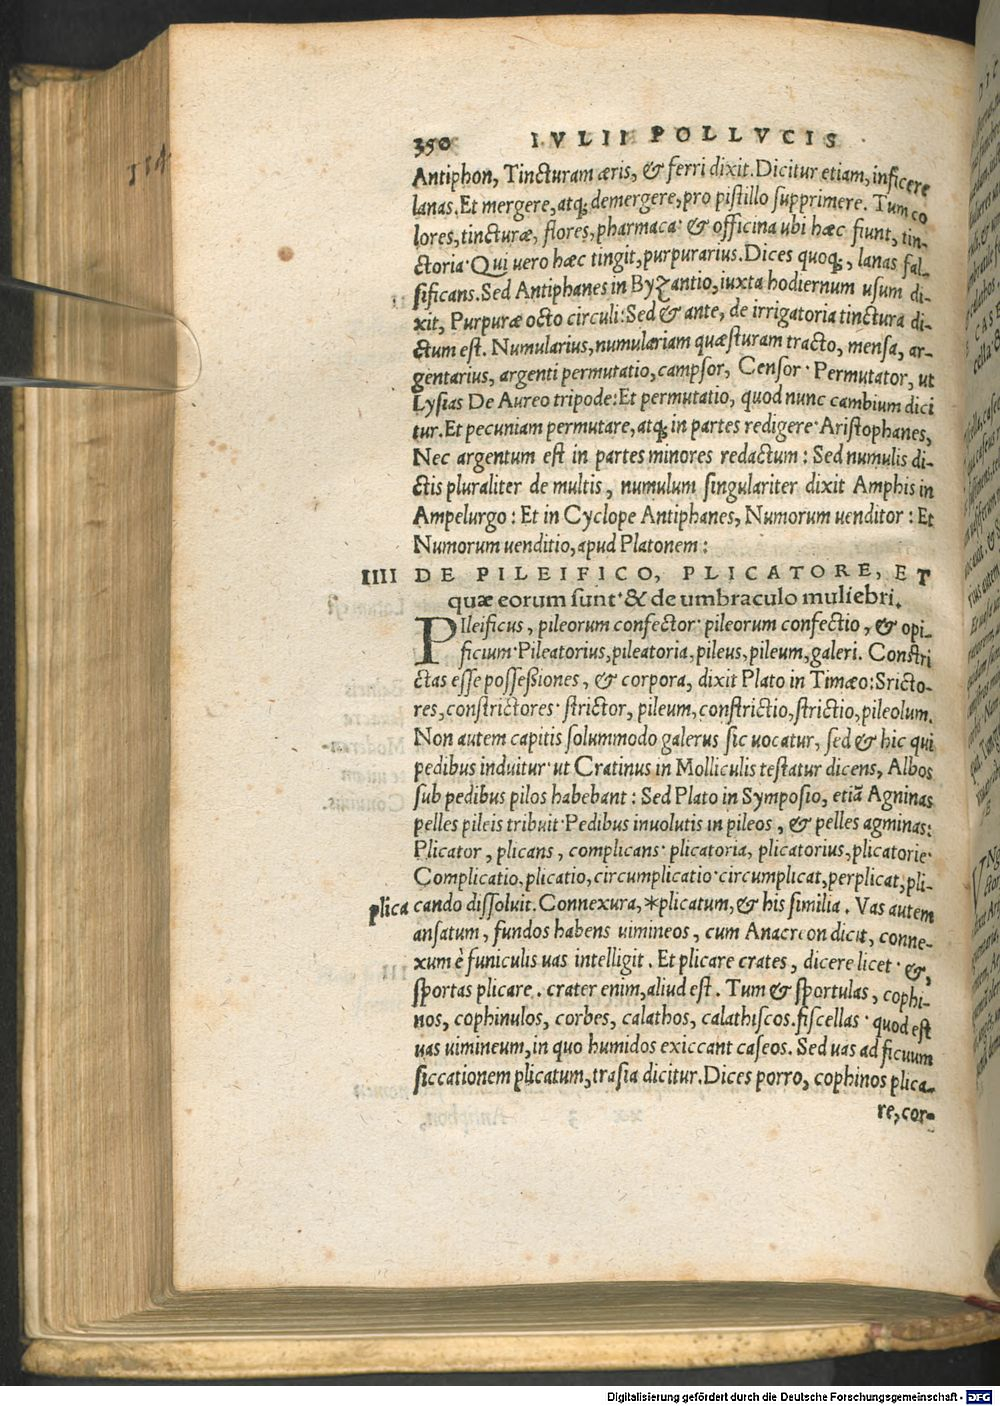 114.
350 IVLII POLLVCIS
Antiphon, Tincturam æris, & ferri dixit. Dicitur etiam, inficere
lanas. Et mergere, atq; demergere, pro pistillo supprimere. Tum co
lores, tincturæ, flores, pharmaca· & officina ubi hæc fiunt, tin-
ctoria· Qui uero hæc tingit, purpurarius. Dices quoq;, lanas fal-
sificans. Sed Antiphanes in Byzantio, iuxta hodiernum usum di-
xit, Purpuræ octo circuli: Sed & ante, de irrigatoria tinctura di-
ctum est. Numularius, numulariam quæsturam tracto, mensa, ar-
gentarius, argenti permutatio, campsor, Censor· Permutator, ut
Lysias De Aureo tripode: Et permutatio, quod nunc cambium dici
tur. Et pecuniam permutare, atq; in partes redigere· Aristophanes,
Nec argentum est in partes minores redactum: Sed numulis di-
ctis pluraliter de multis, numulum singulariter dixit Amphis in
Ampelurgo: Et in Cyclope Antiphanes, Numorum uenditor: Et
Numorum uenditio, apud Platonem:
IIII DE PILEIFICO, PLICATORE, ET
quæ eorum sunt· & de umbraculo muliebri.
PIleificus, pileorum confector· pileorum confectio, & opi-
ficium· Pileatorius, pileatoria, pileus, pileum, galeri. Constri
ctas esse possessiones, & corpora, dixit Plato in Timæo: Sricto-
res, constrictores· strictor, pileum, constrictio, strictio, pileolum.
Non autem capitis solummodo galerus sic uocatur, sed & hic qui
pedibus induitur· ut Cratinus in Molliculis testatur dicens, Albos
sub pedibus pilos habebant: Sed Plato in Symposio, etiā Agninas
pelles pileis tribuit· Pedibus inuolutis in pileos, & pelles agminas:
Plicator, plicans, complicans· plicatoria, plicatorius, plicatorie·
Complicatio, plicatio, circumplicatio· circumplicat, perplicat, pli-
plica cando dissoluit. Connexura, *plicatum, & his similia. Vas autem
ansatum, fundos habens uimineos, cum Anacreon dicit, conne-
xum è funiculis uas intelligit. Et plicare crates, dicere licet· &,
sportas plicare. crater enim, aliud est. Tum & sportulas, cophi-
nos, cophinulos, corbes, calathos, calathiscos. fiscellas· quod est
uas uimineum, in quo humidos exiccant caseos. Sed uas ad ficuum
siccationem plicatum, trasia dicitur. Dices porro, cophinos plica-
re, cor-
Digitalisierung gefördert durch die Deutsche Forschungsgemeinschaft - DFG